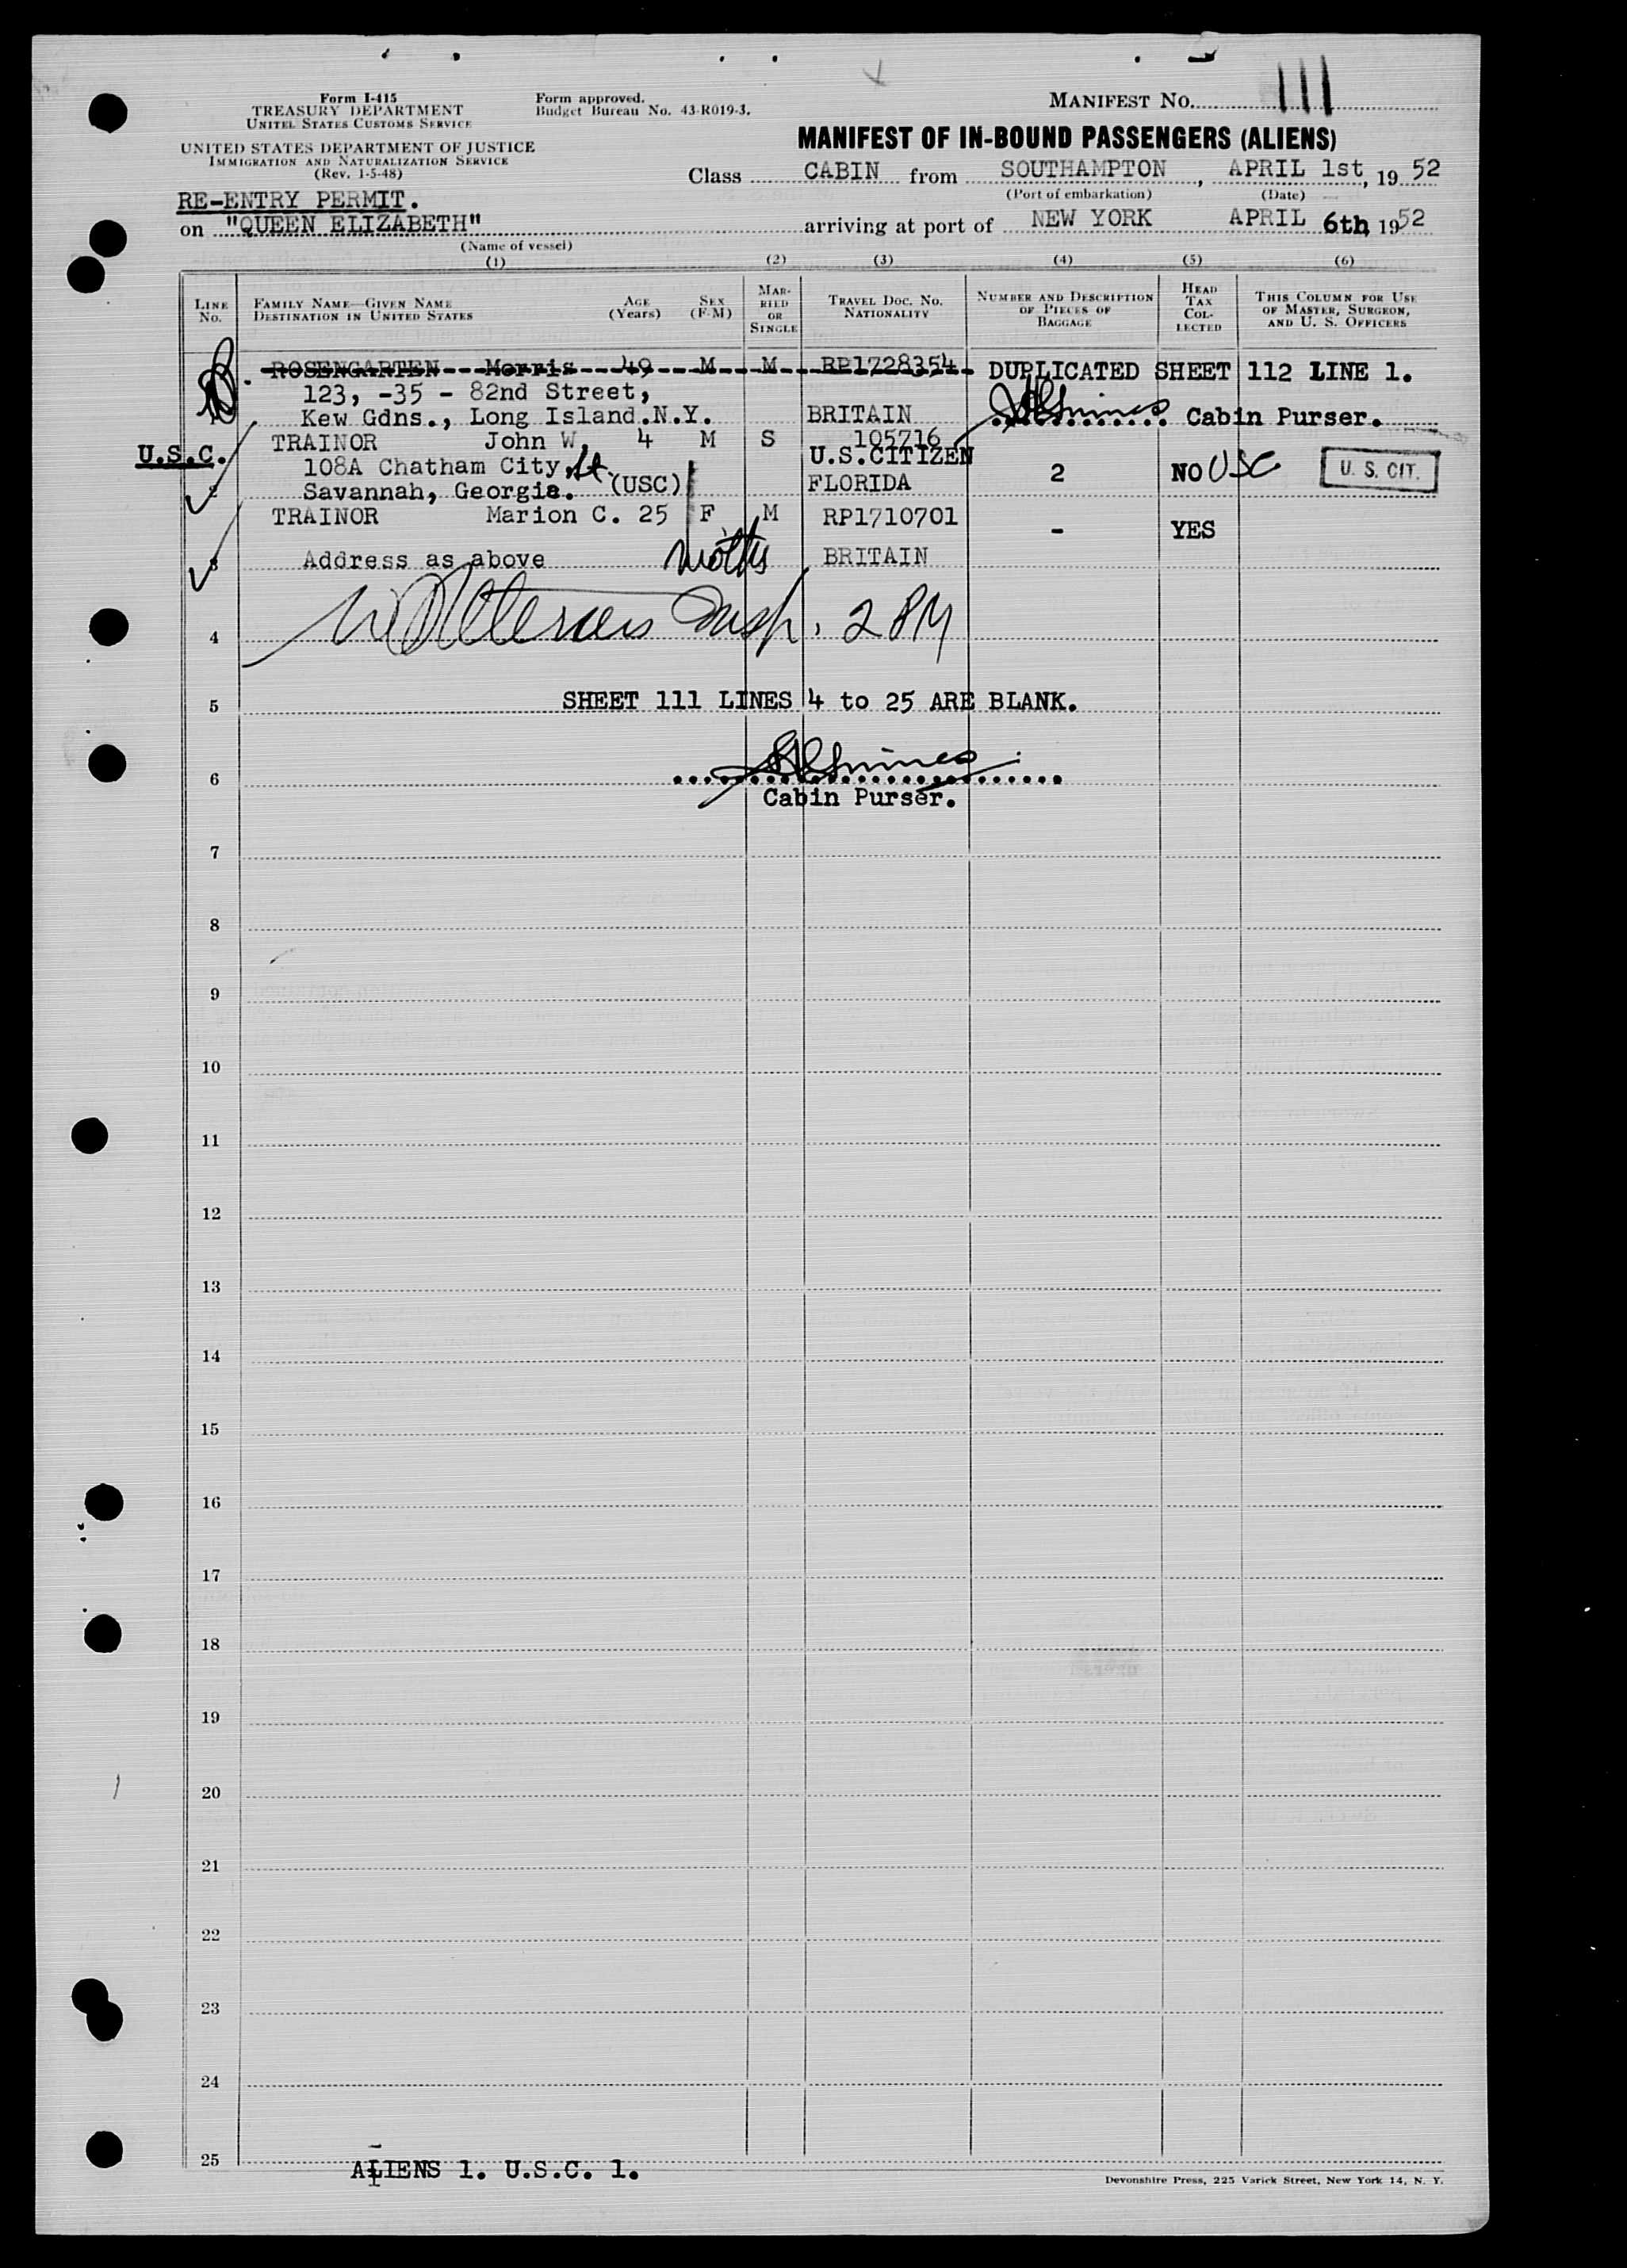 Form I-415
TREASURY DEPARTMENT
UNITED STATES CUSTOMS SERVICE
UNITED STATES DEPARTMENT OF JUSTICE
IMMIGRATION AND NATURALIZATION SERVICE
(Rev. 1-5-48)
Form approved.
Budget Bureau No. 43-R019-3.
MANIFEST No. 111
MANIFEST OF IN-BOUND PASSENGERS (ALIENS)
Class CABIN from SOUTHAMPTON, APRIL 1st, 19 52
(Port of embarkation) (Date)
RE-ENTRY PERMIT.
on "QUEEN ELIZABETH" arriving at port of NEW YORK APRIL 6th, 1952
(Name of vessel)
(1) (2) (3) (4) (5) (6)
LINE No. FAMILY NAME—GIVEN NAME DESTINATION IN UNITED STATES AGE (Years) SEX (F-M) MARRIED OR SINGLE TRAVEL DOC. NO. NATIONALITY NUMBER AND DESCRIPTION OF PIECES OF BAGGAGE HEAD TAX COLLECTED THIS COLUMN FOR USE OF MASTER, SURGEON, AND U. S. OFFICERS
ROSENGARTEN Morris 49 M M RP1728354 DUPLICATED SHEET 112 LINE 1.
123, -35 - 82nd Street,
Kew Gdns., Long Island.N.Y. BRITAIN Cabin Purser.
TRAINOR John W. 4 M S 105716
U.S.C. 108A Chatham City, U.S.CITIZEN
2 Savannah, Georgia. (USC) FLORIDA 2 NO USC U. S. CIT.
TRAINOR Marion C. 25 F M RP1710701 - YES
3 Address as above BRITAIN
Insp. 2 PM
4
5 SHEET 111 LINES 4 to 25 ARE BLANK.
6
Cabin Purser.
7
8
9
10
11
12
13
14
15
16
17
18
19
20
21
22
23
24
25
ALIENS 1. U.S.C. 1.
Devonshire Press, 225 Varick Street, New York 14, N. Y.